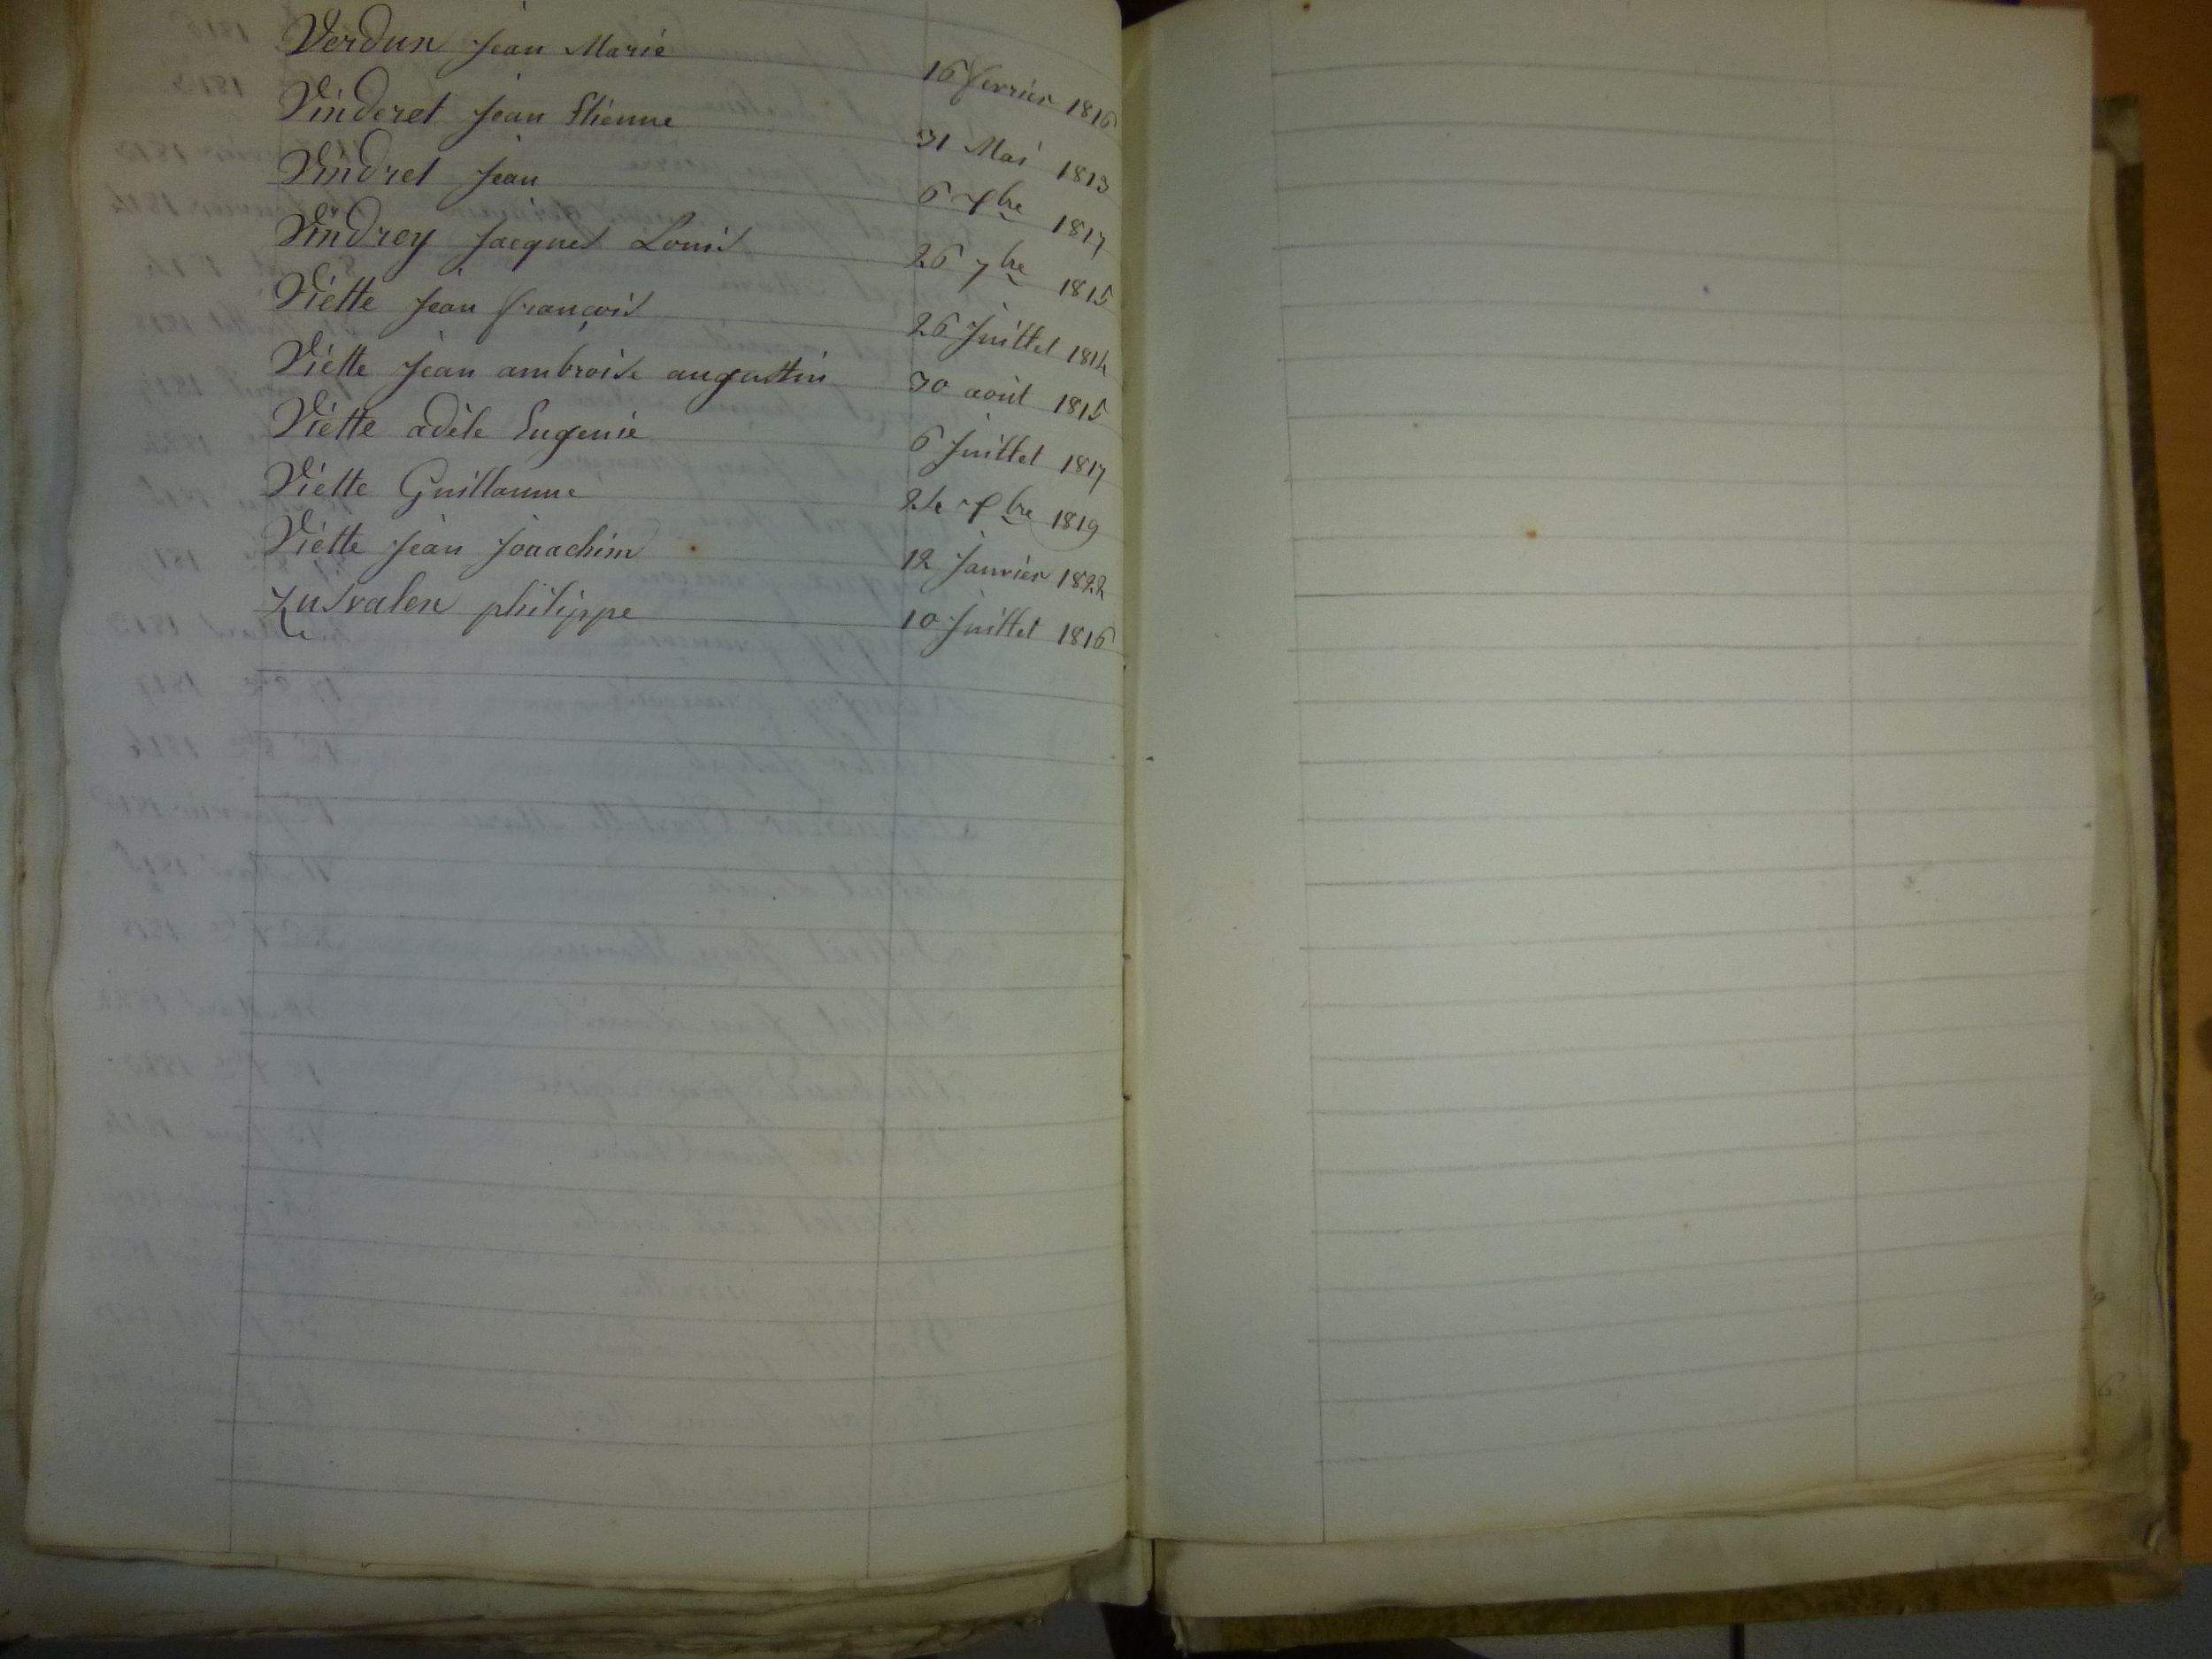 Verdun Jean Marie 16 fevrier 1816
Vinderet Jean Etienne 31 Mai 1813
Vindret Jean 6 Xbre 1817
Vindrey Jacques Louis 26 7bre 1815
Viette Jean françois 26 Juillet 1814
Viette Jean ambroise augustin 30 août 1815
Viette adèle Eugenie 6 Juillet 1817
Viette Guillaume 24 Xbre 1819
Viette Jean Jouachim 12 Janvier 1822
philippe 10 Juillet 1816